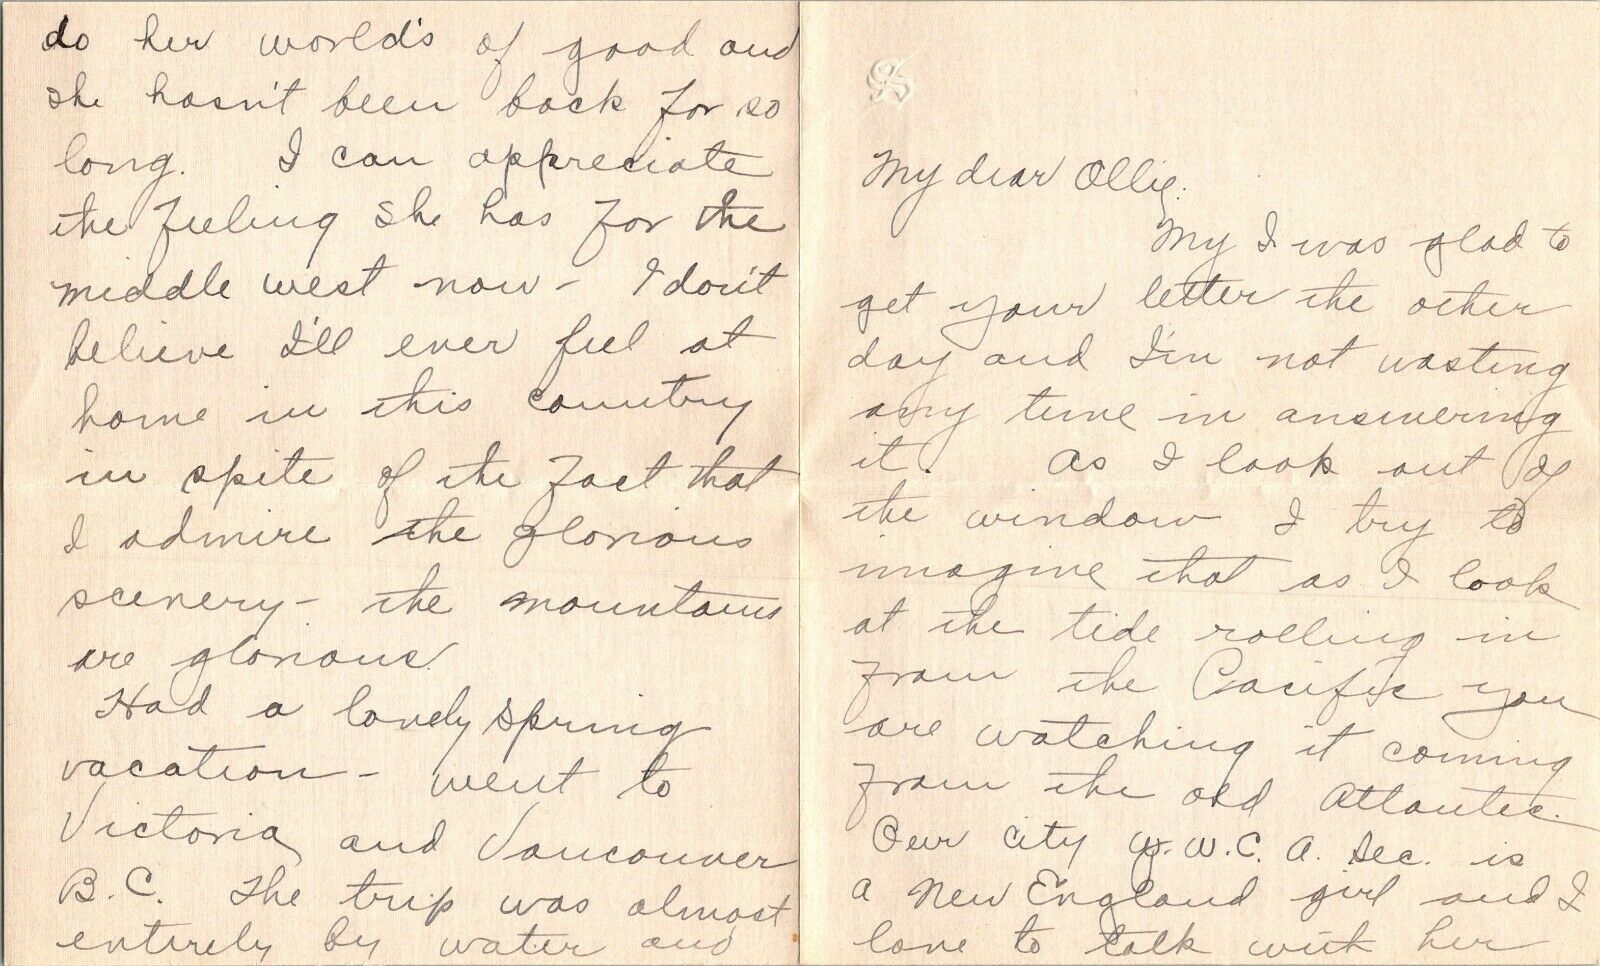 My dear Ollie:
My I was glad to
get your letter the other
day and I'm not wasting
any time in answering
it. As I look out of
the window I try to
imagine that as I look
at the tide rolling in
from the Pacific you
are watching it coming
from the old Atlantic.
Our city Y.W.C.A. Sec. is
a New England girl and I
love to talk with her
do her world's of good and
she hasn't been back for so
long. I can appreciate
the feeling she has for the
middle west now - I don't
believe I'll ever feel at
home in this country
in spite of the fact that
I admire the glorious
scenery - the mountains
are glorious.
Had a lovely spring
vacation - went to
Victoria and Vancouver
B.C. The trip was almost
entirely by water and